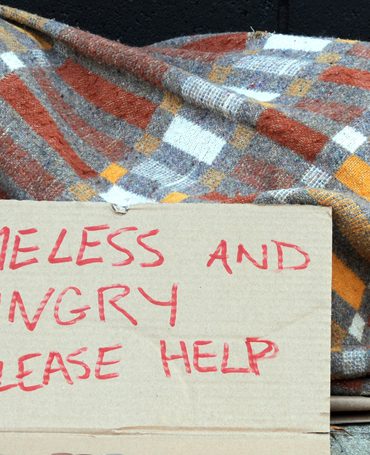 MELESS AND
NGRY
LEASE HELP